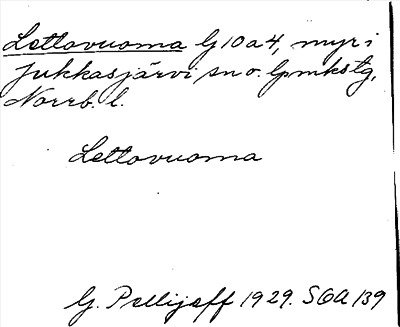 Lettovuoma G 10 a 4, myr i
Jukkasjärvi sn o. lpmkstg,
Norrb. l.
Lettovuoma
G. Pellijeff 1929. SOA 139